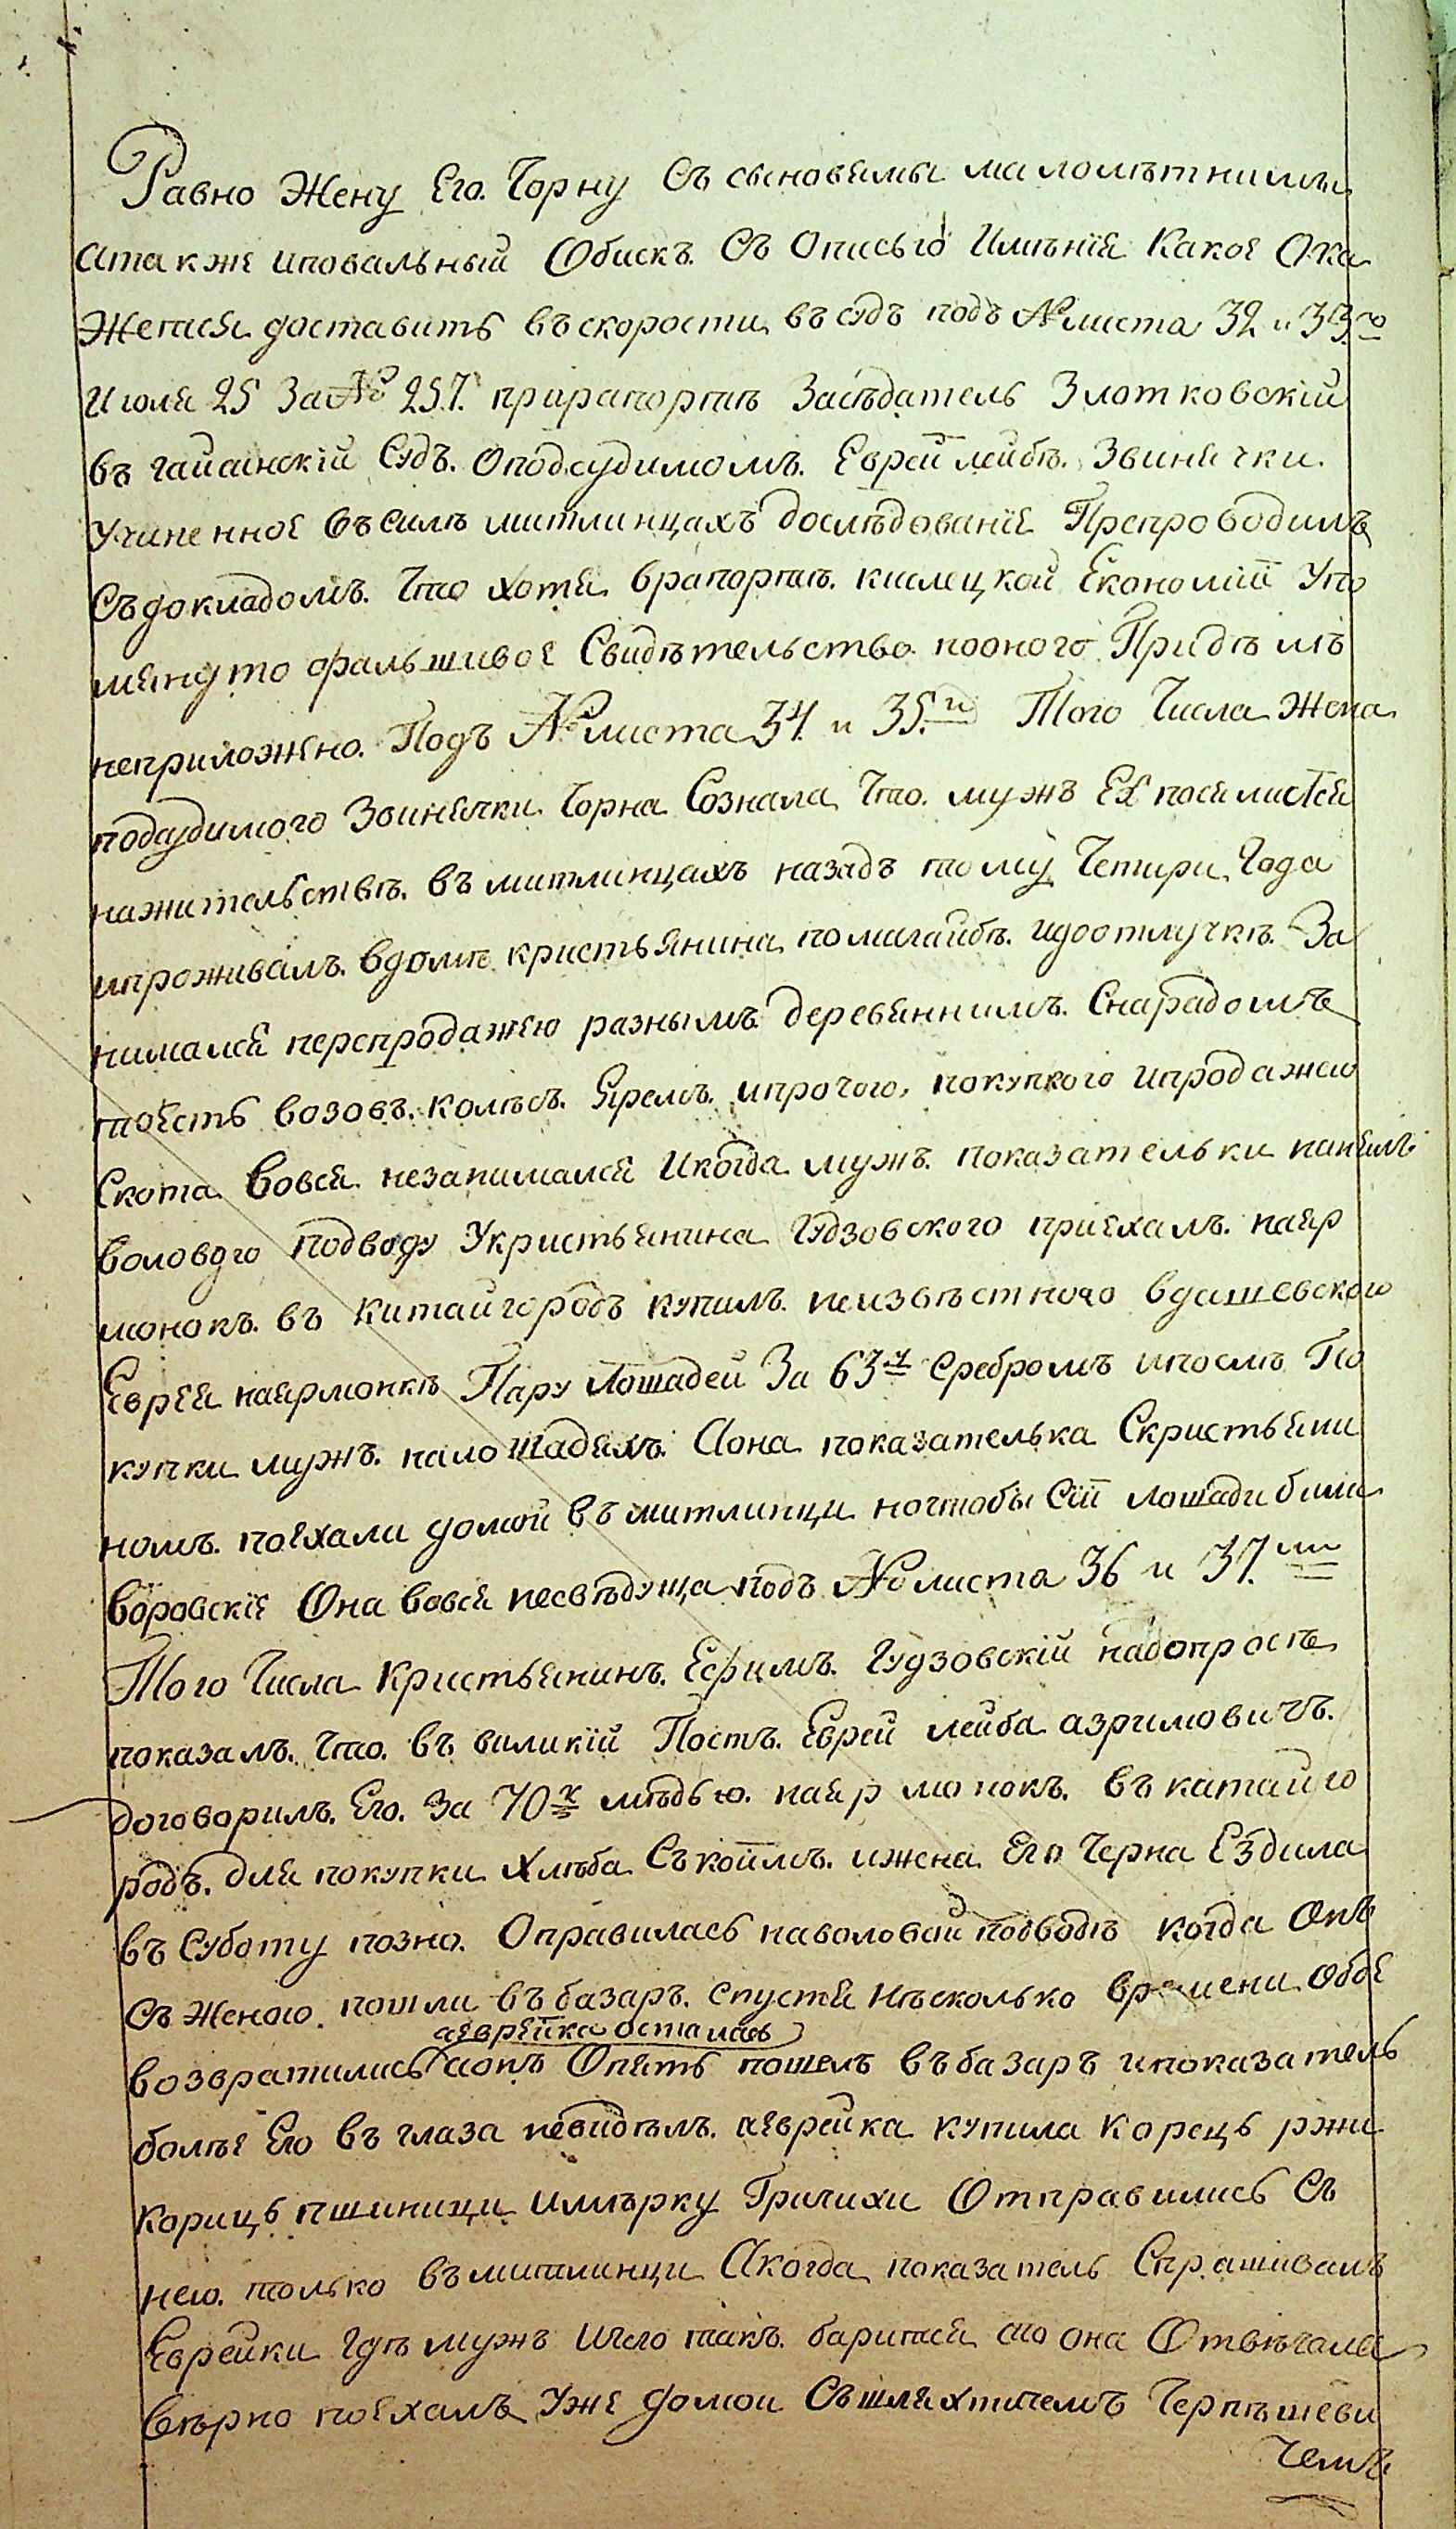 Равно Жену Его. Чорну Съ сыновямы малолѣтними
Атакже иповальный Обискъ. Съ Описью Имѣнія Какое Ока
Жется доставить въ скорости въ судъ подъ № листа 32 и 33.мъ
Июля 25 За № 257. прирапортѣ Засѣдатель Злотковскій
въ гайсинскій Судъ. Оподсудимомъ. Еврей лейбѣ. Звинячки.
Учиненное въ Силѣ митлинцахъ дослѣдованіе Препроводилъ
Съ докладомъ. Что хотя врапортѣ. кислецкой Економіи Упо
мянуто фальшивое Свидѣтельство. пооного Придѣлъ
неприложено. Подъ № листа 34. и 35.м Того Числа Жена
подсудимого Звинячки Чорна Сознала, Что. мужъ Ея поселился
нажительствѣ. въ митлинцахъ назадъ тому Четири Года
ипроживалъ. вдомѣ кристьянина помагайбѣ. идоотлучкѣ. За
нимался перепродажею разнымъ деревяннимъ. Снарадомъ
тоесть возовъ. колѣсъ. Яремъ. ипрочого, покупкою ипродажею
Скота Вовся незанимался Икогда мужъ. показательки нанялъ
воловую подводу Укристьянина Гудзовского приехалъ. наяр
монокъ. въ Китайгородъ купилъ. неизвѣстного вдашевскою
Еврея наярмонкѣ Пару Лошадей За 63 ч Сребромъ ипослѣ По
купки мужъ. налошадяхъ. Аона показателька Скристьяни
номъ. поехали домой въ митлинци ночтобы Сіи лошади били
Воровскіе Она вовся несвѣдуща подъ № листа 36 и 37.ми
Того Числа Кристьянинъ. Ефимъ. Гудзовскій надопросѣ
показалъ. Что. въ великій Постъ. Еврей лейба азримовичъ.
договорилъ. Его. За 70 к мѣдью. наярмонокъ. въ катайго
родъ. для покупки хлѣба Съкоимъ. ижена Его Черна Ездила
въ Суботу позно. Оправилась наволовой подводѣ когда Онъ
Съ Женою. пошли въ базаръ. Спустя нѣсколько времени Обое
аеврейка осталась
возвратились аонъ Опять пошелъ въ базаръ ипоказатель
болѣе Его въ глаза невидѣлъ. аеврейка купила корецъ ржи
корицъ пшиници имѣрку Гричихи Отправились Съ
нею. только въ митлинци Акогда показатель Спрашивалъ
Еврейки Гдѣ мужъ Ичего такъ. барится то она Отвѣчала
Вѣрно поехалъ Уже домои Съ шляхтичемъ Чернѣшеви
чемъ.